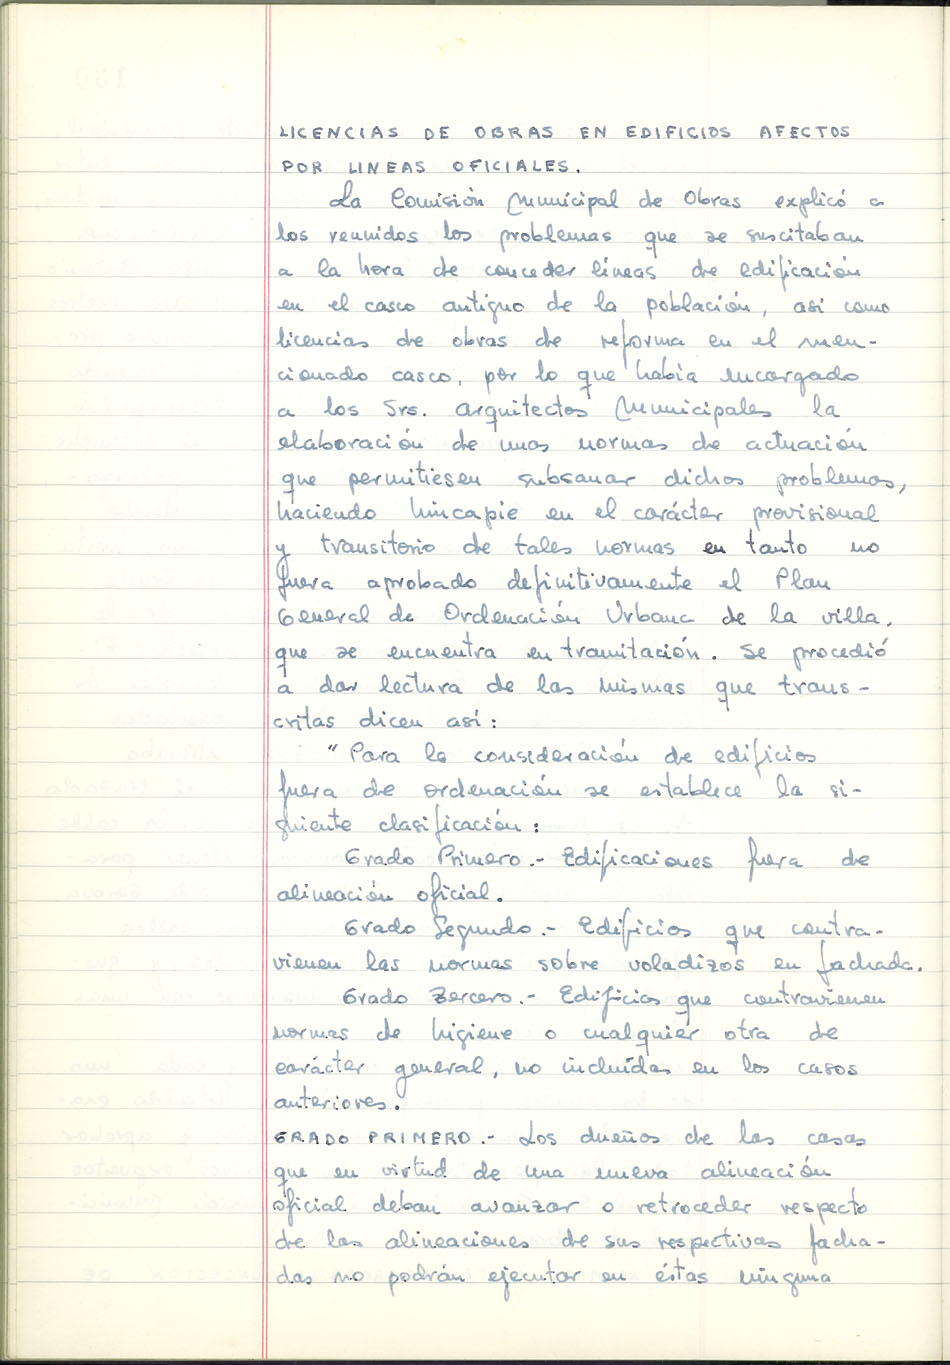 LICENCIAS DE OBRAS EN EDIFICIOS AFECTOS
POR LINEAS OFICIALES.
La Comisión Municipal de Obras explicó a
los reunidos los problemas que se suscitaban
a la hora de conceder líneas de edificación
en el casco antiguo de la población, asi como
licencias de obras de reforma en el men-
cionado casco, por lo que había encargado
a los Srs. Arquitectos Municipales la
elaboración de unas normas de actuación
que permitiesen subsanar dichos problemas,
haciendo hincapie en el carácter provisional
y transitorio de tales normas en tanto no
fuera aprobado definitivamente el Plan
General de Ordenación Urbana de la villa,
que se encuentra en tramitación. Se procedió
a dar lectura de las mismas que trans-
critas dicen así:
"Para la consideración de edificios
fuera de ordenación se establece la si-
guiente clasificación:
Grado Primero.- Edificaciones fuera de
alineación oficial.
Grado Segundo.- Edificios que contra-
vienen las normas sobre voladizos en fachada.
Grado Tercero.- Edificios que contravienen
normas de higiene o cualquier otra de
carácter general, no incluídas en los casos
anteriores.
GRADO PRIMERO.- Los dueños de las casas
que en virtud de una nueva alineación
oficial deban avanzar o retroceder respecto
de las alineaciones de sus respectivas facha-
das no podrán ejecutar en éstas ninguna